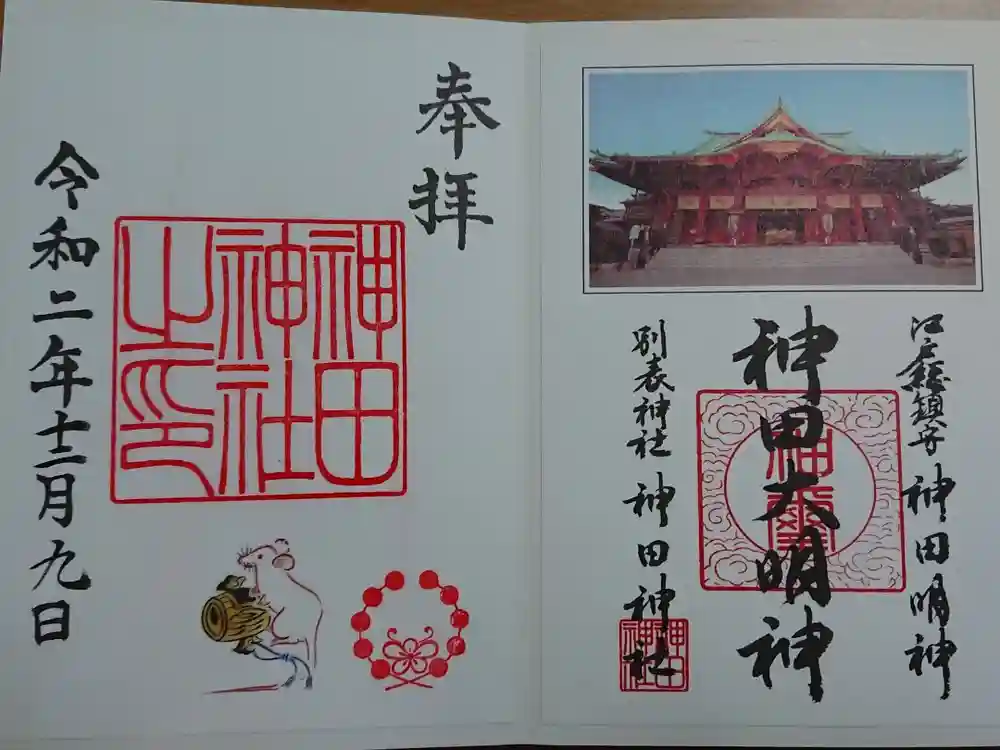 江戸総鎮守 神田明神
神田大明神
神璽
別表神社 神田神社
神田神社
奉拝
神田
神社
之印
令和二年十二月九日